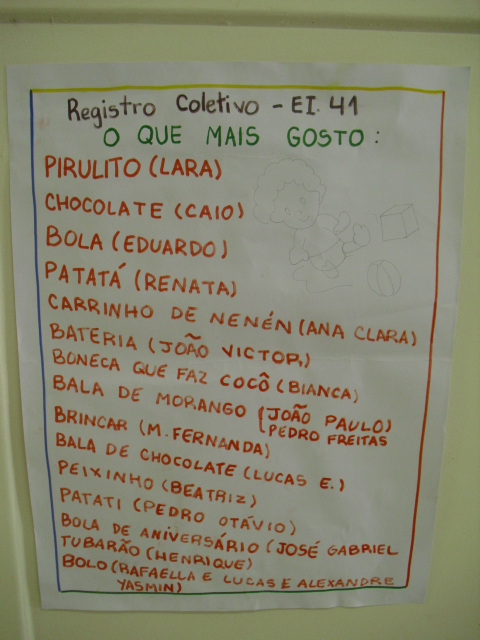 Registro Coletivo - EI. 41
O QUE MAIS GOSTO :
PIRULITO (LARA)
CHOCOLATE (CAIO)
BOLA (EDUARDO)
PATATÁ (RENATA)
CARRINHO DE NENÉN (ANA CLARA)
BATERIA (JOÃO VICTOR)
BONECA QUE FAZ COCÔ (BIANCA)
BALA DE MORANGO (JOÃO PAULO)
(PEDRO FREITAS
BRINCAR (M. FERNANDA)
BALA DE CHOCOLATE (LUCAS E.)
PEIXINHO (BEATRIZ)
PATATI (PEDRO OTÁVIO)
BOLA DE ANIVERSÁRIO (JOSÉ GABRIEL
TUBARÃO (HENRIQUE)
BOLO (RAFAELLA E LUCAS E ALEXANDRE
YASMIN)